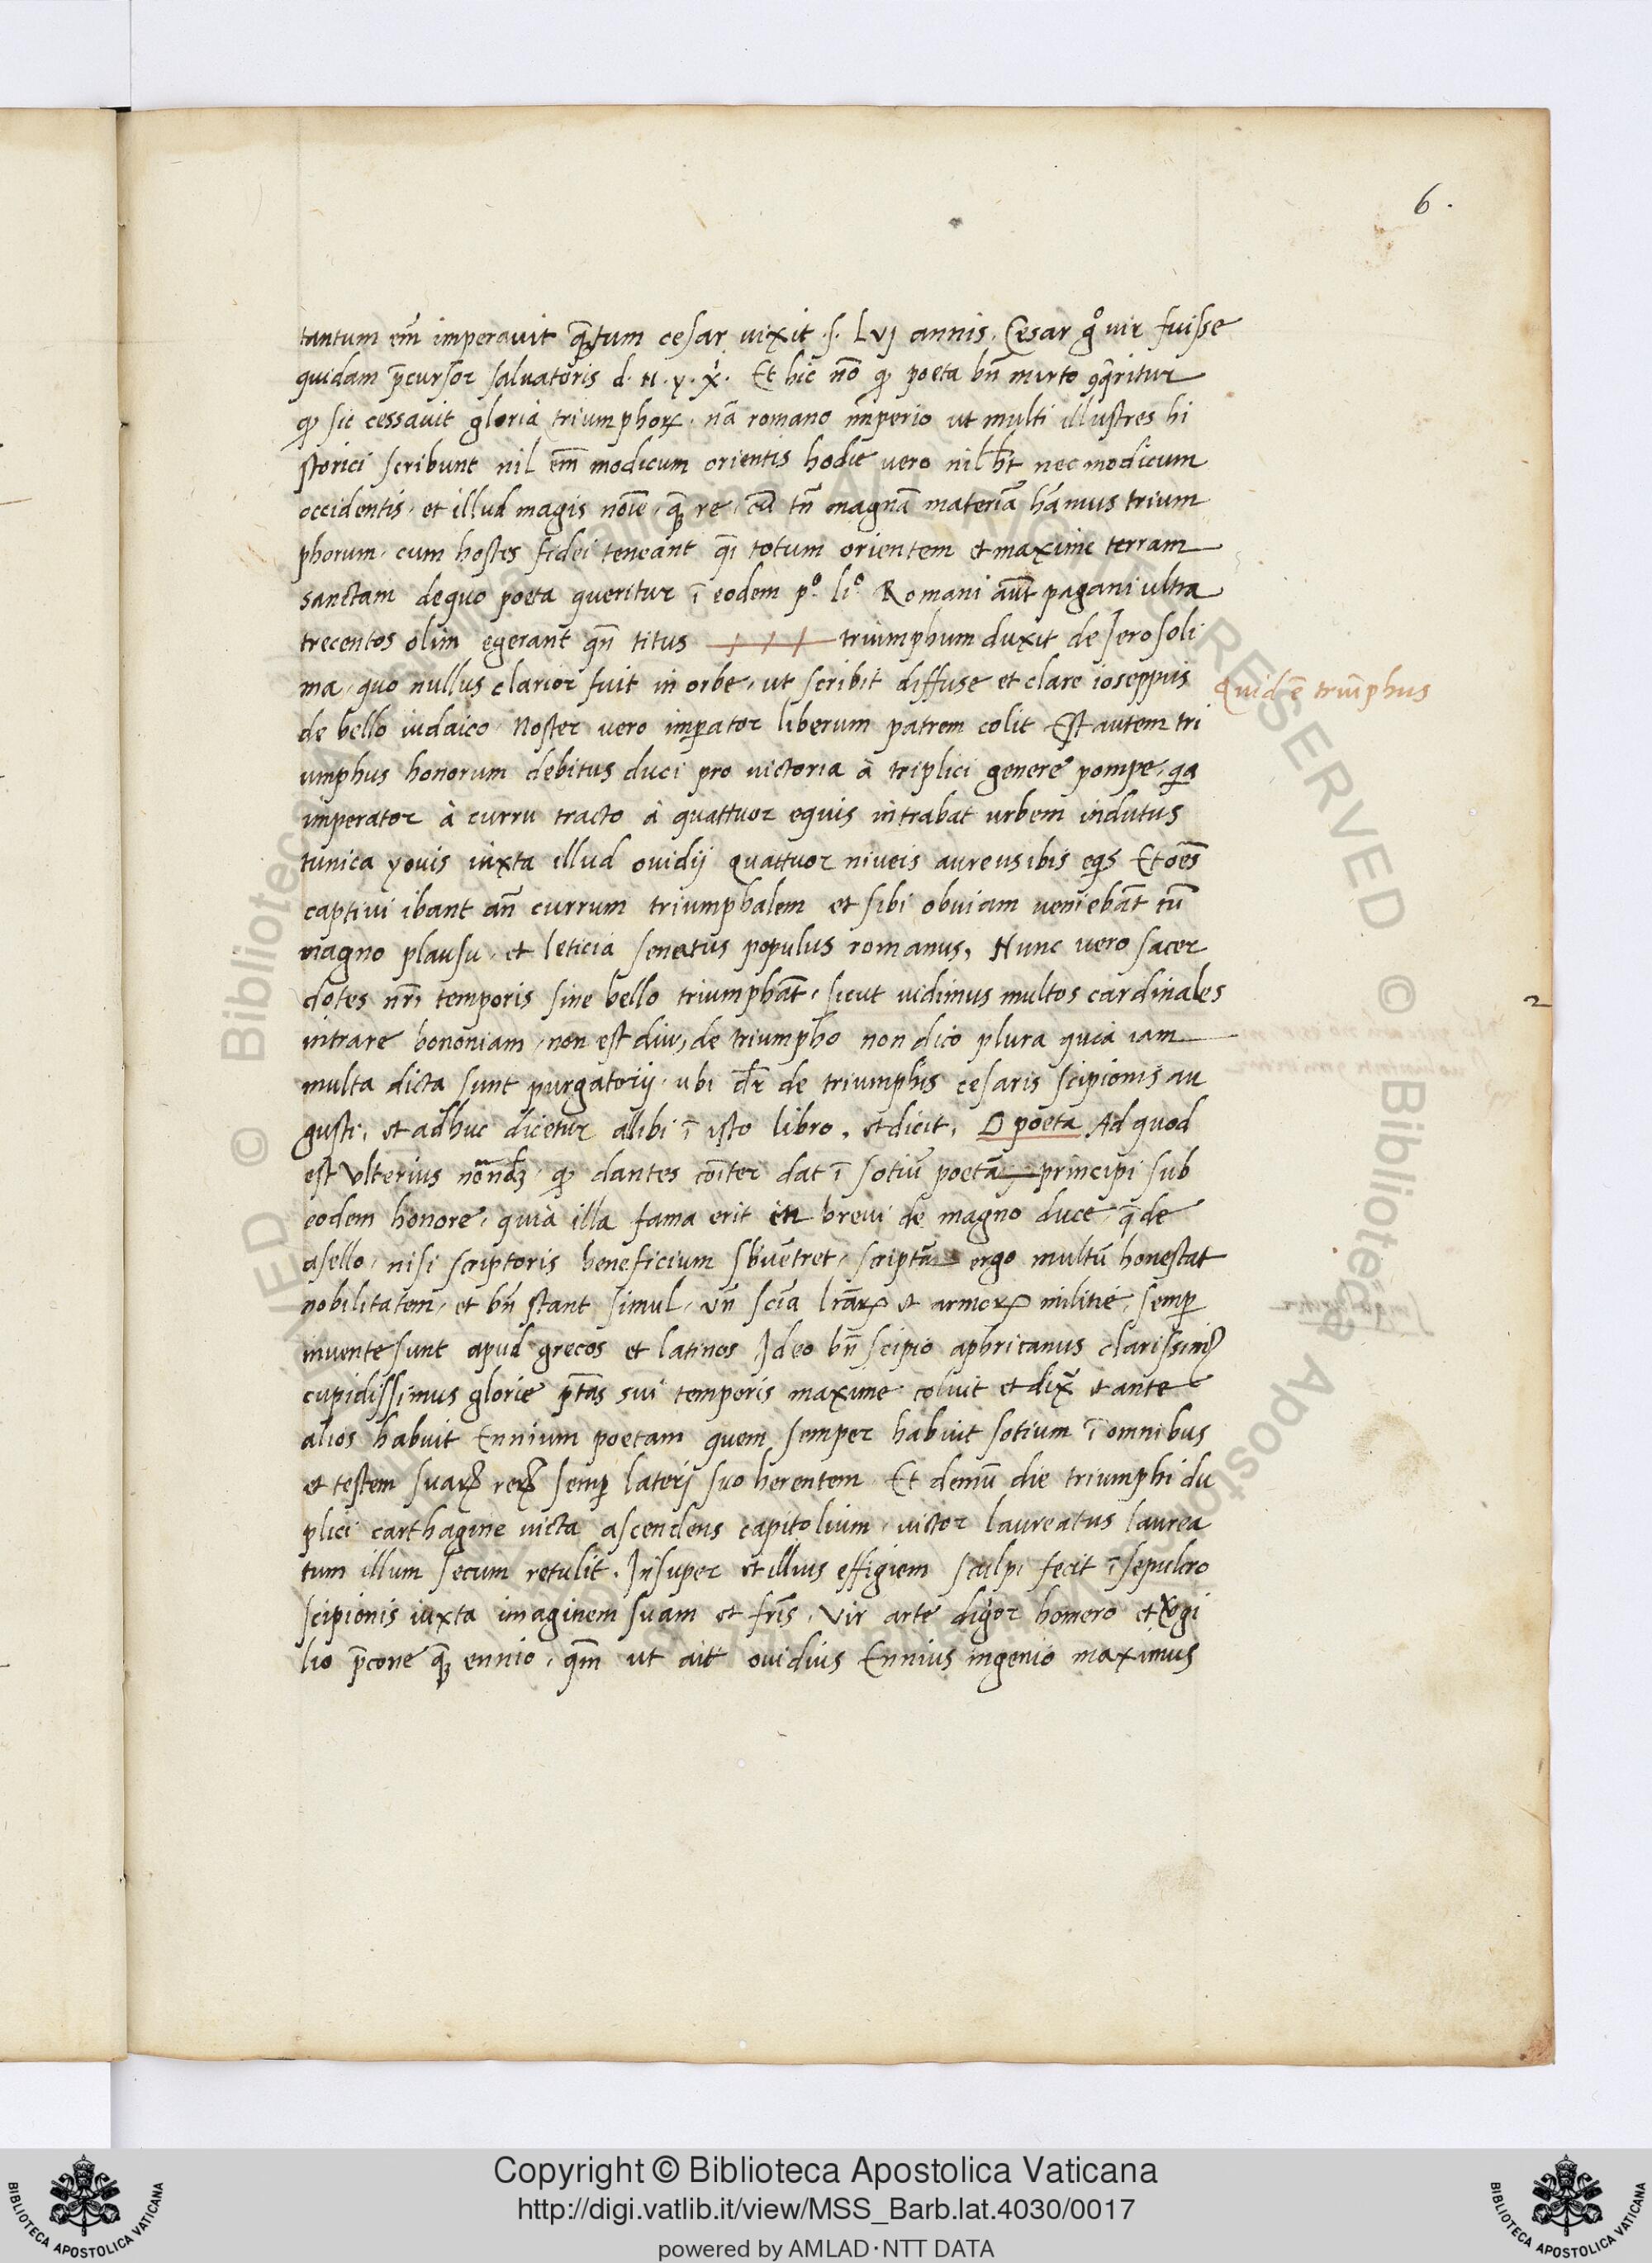 6.
tantum em̄ imperavit qȝtum cesar vixit .s. Lvj annis. Cesar gͦ vir fuisse
quidam p̄cursor salvatoris d. n. y. x̄. Et hic nō ꝙ poeta bn̄ mirto ꝯq̄ritur
ꝙ sic cessavit gloria triumphoꝝ. nā romano imperio ut multi illustres hi
storici scribunt nil em̄ modicum orientis hodie vero nil h̄t nec modicum
occidentis. et illud magis noīe. qȝ re. cū tn̄ magnā materiā hāmus trium
phorum. cum hostes fidei teneant q̄i totum orientem et maxime terram
sanctam de quo poeta queritur ī eodem pͦ. liͦ. Romani aūt pagani ultra
trecentos olim egerant qn̄ titus triumphum duxit de Jerosoli
ma. quo nullus clarior fuit in orbe, ut scribit diffuse et clare ioseppus
Quid ē triūphus
de bello iudaico. Noster vero imꝑator liberum patrem colit Est autem tri
umphus honorum debitus duci pro victoria à triplici genere pompe. qa
imperator à curru tracto à quattuor equis intrabat urbem indutus
tunica yovis iuxta illud ovidij quattuor niveis aureus ibis eqis Et oēs
captivi ibant an̄ currum triumphalem et sibi obviam veniebāt cū
magno plausu. et leticia senatus populus romanus, Nunc vero sacer
dotes nr̄i temporis sine bello triumphāt. sicut vidimus multos cardinales
2
intrare bononiam. non est diu, de triumpho non dico plura quia iam
multa dicta sunt purgatorij. ubi dr̄ de triumphis cesaris scipionis au
gusti. et adhuc dicetur alibi ī isto libro. et dicit, O poeta Ad quod
est ulterius nōndȝ. ꝙ dantes cōiter dat ī sotiū poetā principi sub
eodem honore. quia illa fama erit in brevi de magno duce. q̄ de
asello. nisi scriptoris beneficium sbvēiret. scriptā ergo multū honestat
nobilitatem. et bn̄ stant simul. vn̄ sciā lrāꝝ et armoꝝ militie. semꝑ
invente sunt apud grecos et latinos Ideo bn̄ scipio aphricanus clarissimꝰ
cupidissimus glorie p̄tas sui temporis maxime coluit et dix̄ et ante
alios habuit Ennium poetam quem semper habuit sotium ī omnibus
et testem suaꝝ reꝝ semꝑ laterj suo herentem Et demū die triumphi du
plici carthagine victa ascendens capitolium. victor laureatus laurea
tum illum secum retulit. Insuper et illius effigiem sculpi fecit ī sepulcro
scipionis iuxta imaginem suam et fr̄is. Vir arte digor homero et v̄gi
lio p̄cone qȝ ennio. qm̄ ut ait ovidius Ennius ingenio maximus
Copyright © Biblioteca Apostolica Vaticana
http://digi.vatlib.it/view/MSS_Barb.lat.4030/0017
powered by AMLAD·NTT DATA
BIBLIOTECA APOSTOLICA VATICANA
BIBLIOTECA APOSTOLICA VATICANA